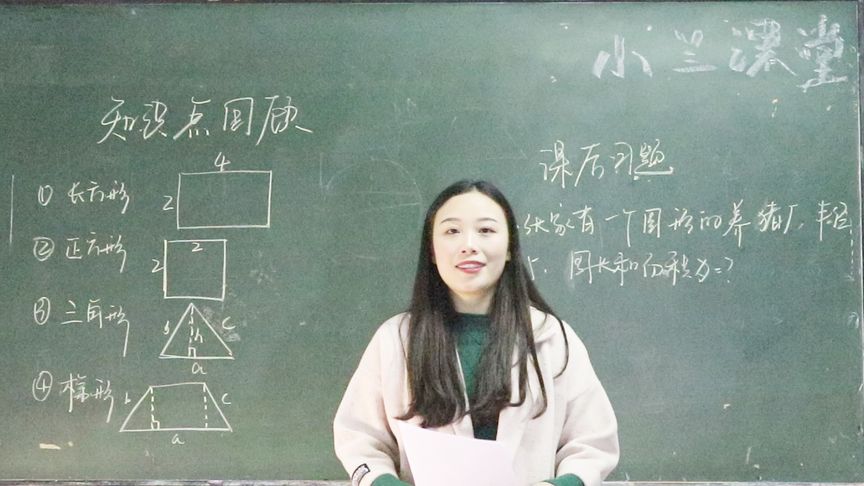 小兰课堂
知识点回顾
4
① 长方形 2
② 正方形 2 2
③ 三角形 b h c
a
④ 梯形 b c
a
课后习题
家有一个圆形的养猪厂,半径
周长和面积为=?